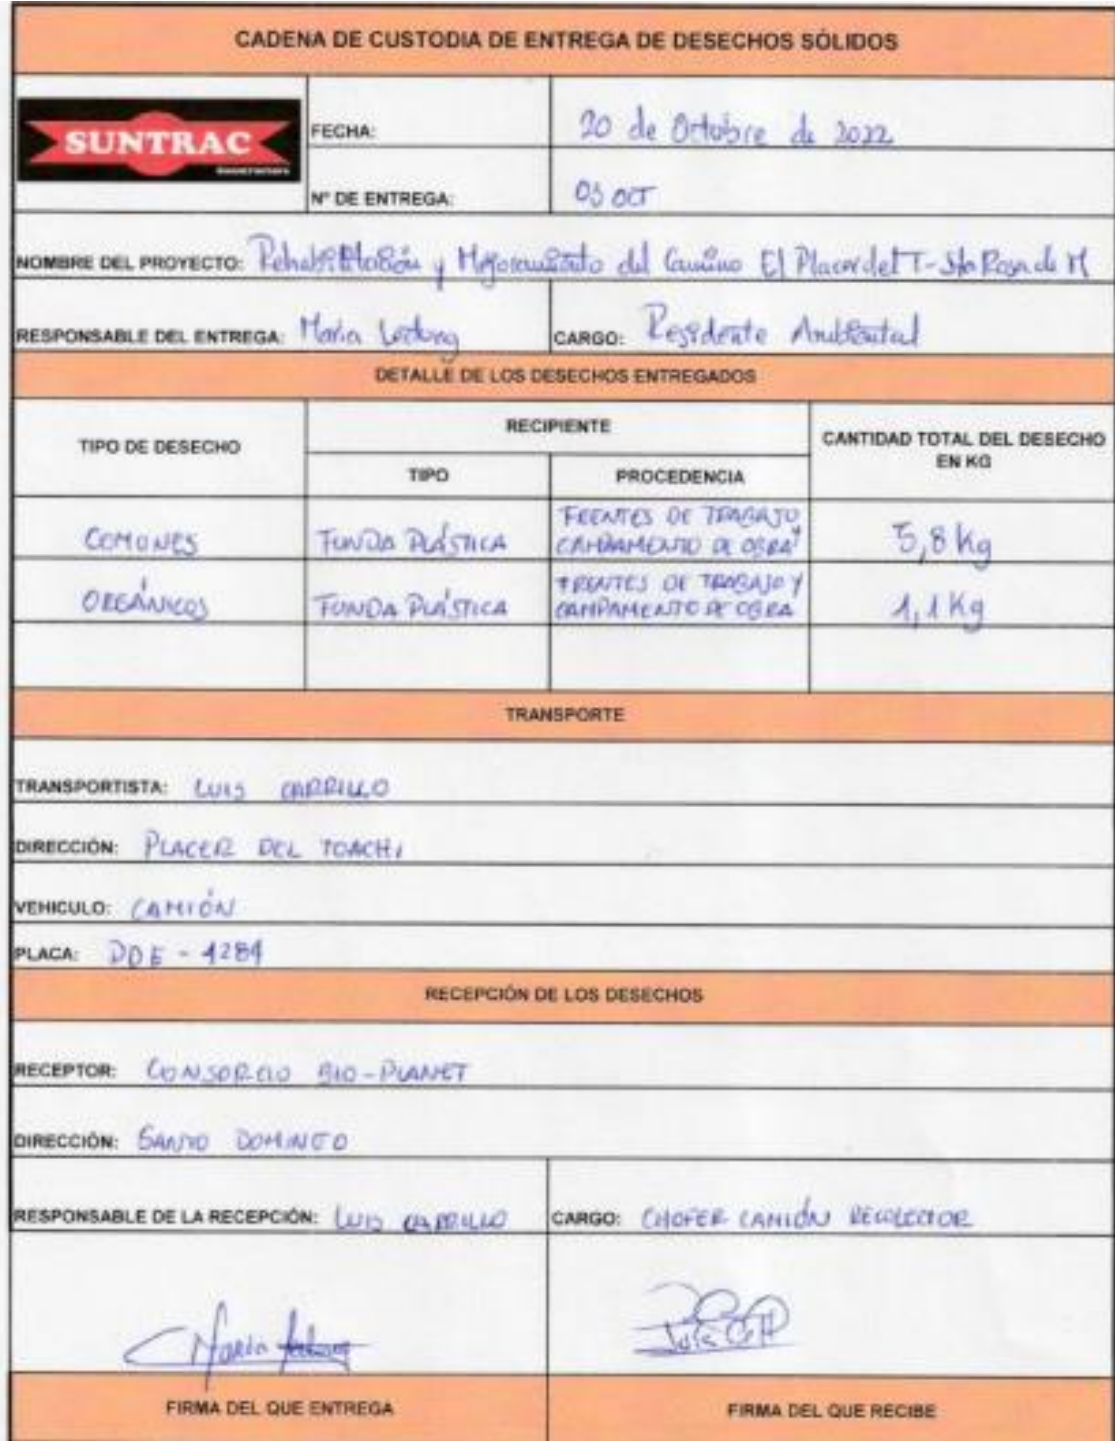 CADENA DE CUSTODIA DE ENTREGA DE DESECHOS SÓLIDOS
SUNTRAC
FECHA: 20 de Octubre de 2022
Nº DE ENTREGA: 03 OCT
NOMBRE DEL PROYECTO: Rehabilitación y Mejoramiento del Camino El Placer del T-Sta Rosa de M
RESPONSABLE DEL ENTREGA: María CARGO: Residente Ambiental
DETALLE DE LOS DESECHOS ENTREGADOS
TIPO DE DESECHO RECIPIENTE CANTIDAD TOTAL DEL DESECHO EN KG
TIPO PROCEDENCIA
COMUNES FUNDA PLÁSTICA FRENTES DE TRABAJO Y CAMPAMENTO DE OBRA 5,8 Kg
ORGÁNICOS FUNDA PLÁSTICA FRENTES DE TRABAJO Y CAMPAMENTO DE OBRA 1,1 Kg
TRANSPORTE
TRANSPORTISTA: LUIS CARRILLO
DIRECCIÓN: PLACER DEL TOACHI
VEHICULO: CAMIÓN
PLACA: PDE - 4284
RECEPCIÓN DE LOS DESECHOS
RECEPTOR: CONSORCIO BIO-PLANET
DIRECCIÓN: SANTO DOMINGO
RESPONSABLE DE LA RECEPCIÓN: LUIS CARRILLO CARGO: CHOFER CAMIÓN RECOLECTOR
María
FIRMA DEL QUE ENTREGA FIRMA DEL QUE RECIBE